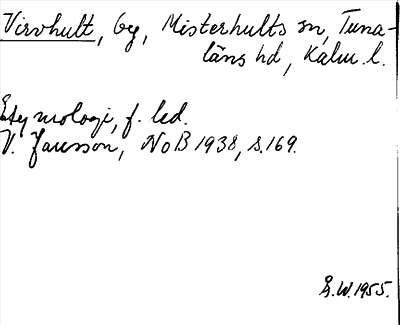 Virvhult, by, Misterhults sn, Tuna-
läns hd, Kalm. l.
Etymologi, f. led.
V. Jansson, NoB 1938, s. 169.
Å.W. 1955.